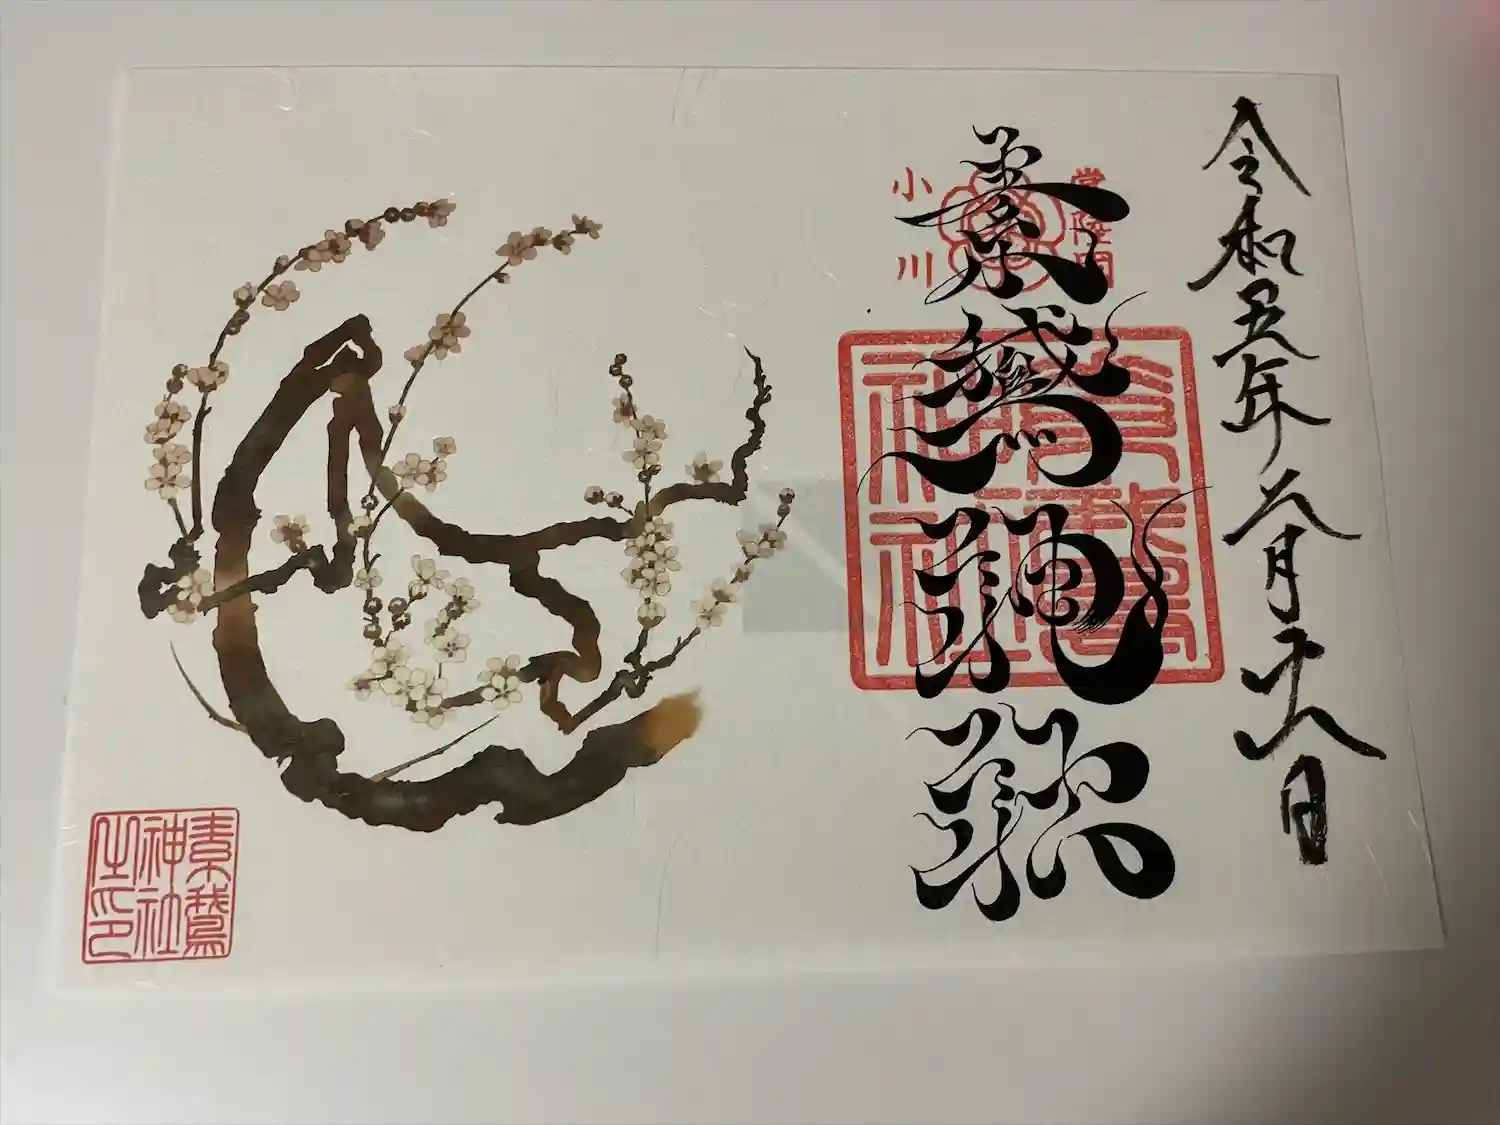 令和五年六月十八日
常陸国
小川
素鵞神社
素鵞
神社
素鵞
神社
之印